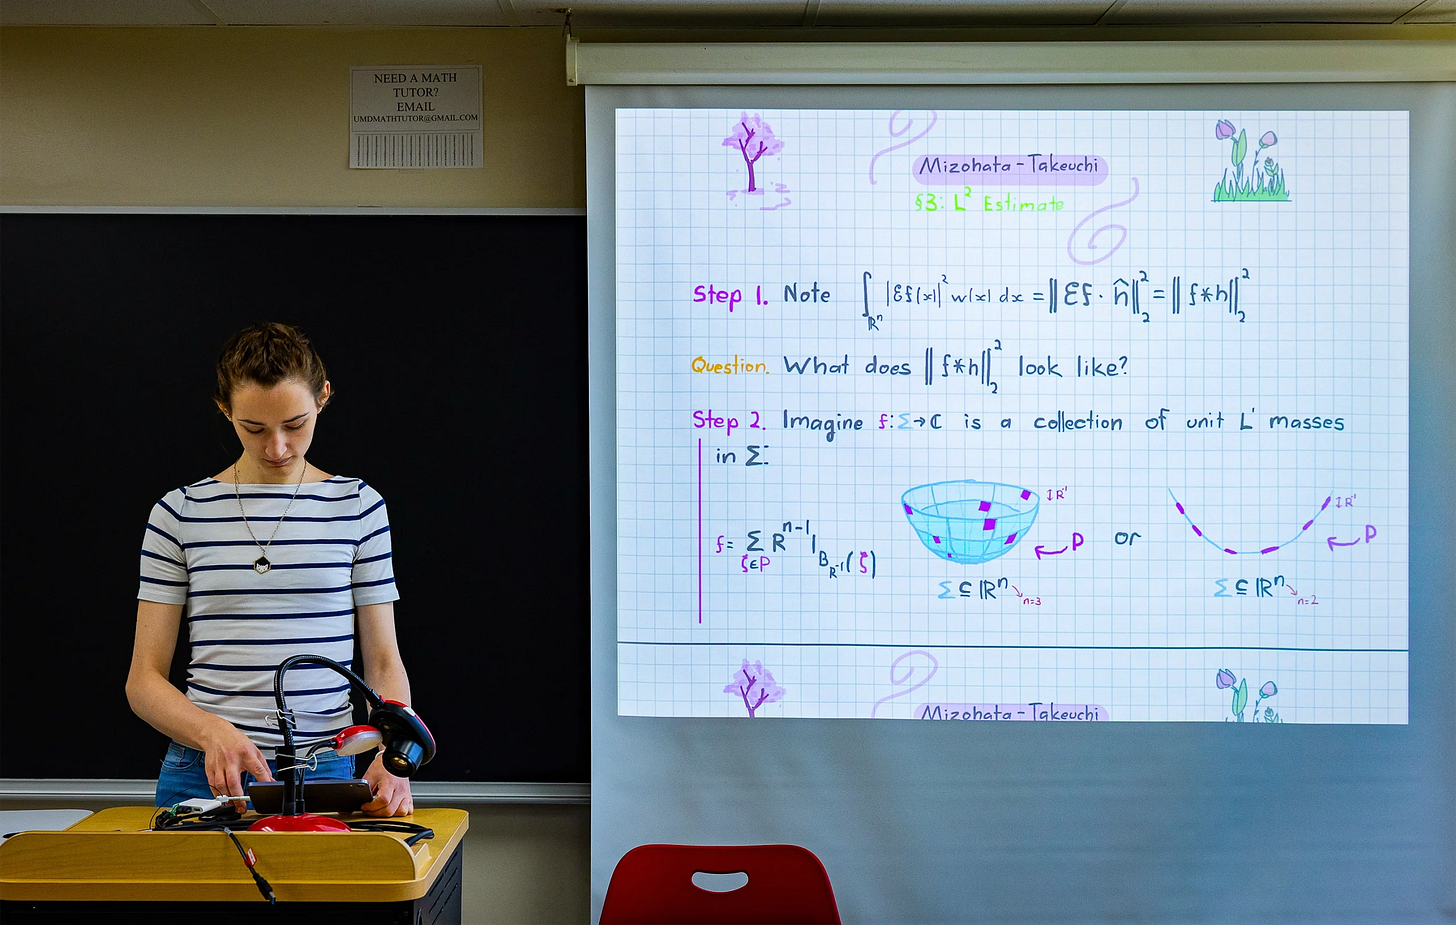 NEED A MATH
TUTOR?
EMAIL
UMDMATHTUTOR@GMAIL.COM
Mizohata-Takeuchi
§3: L² Estimate
Step 1. Note ∫_{ℝⁿ} |Ef(x)|² w(x) dx = ||Ef · ĥ||₂² = ||f*h||₂²
Question. What does ||f*h||₂² look like?
Step 2. Imagine f: Σ→ℂ is a collection of unit L¹ masses
in Σ:
f = Σ_{ζ∈P} R^{n-1} 1_{B_{R^{-1}}(ζ)}
↕R⁻¹
P
or
↕R⁻¹
P
Σ ⊆ ℝⁿ n=3
Σ ⊆ ℝⁿ n=2
Mizohata-Takeuchi